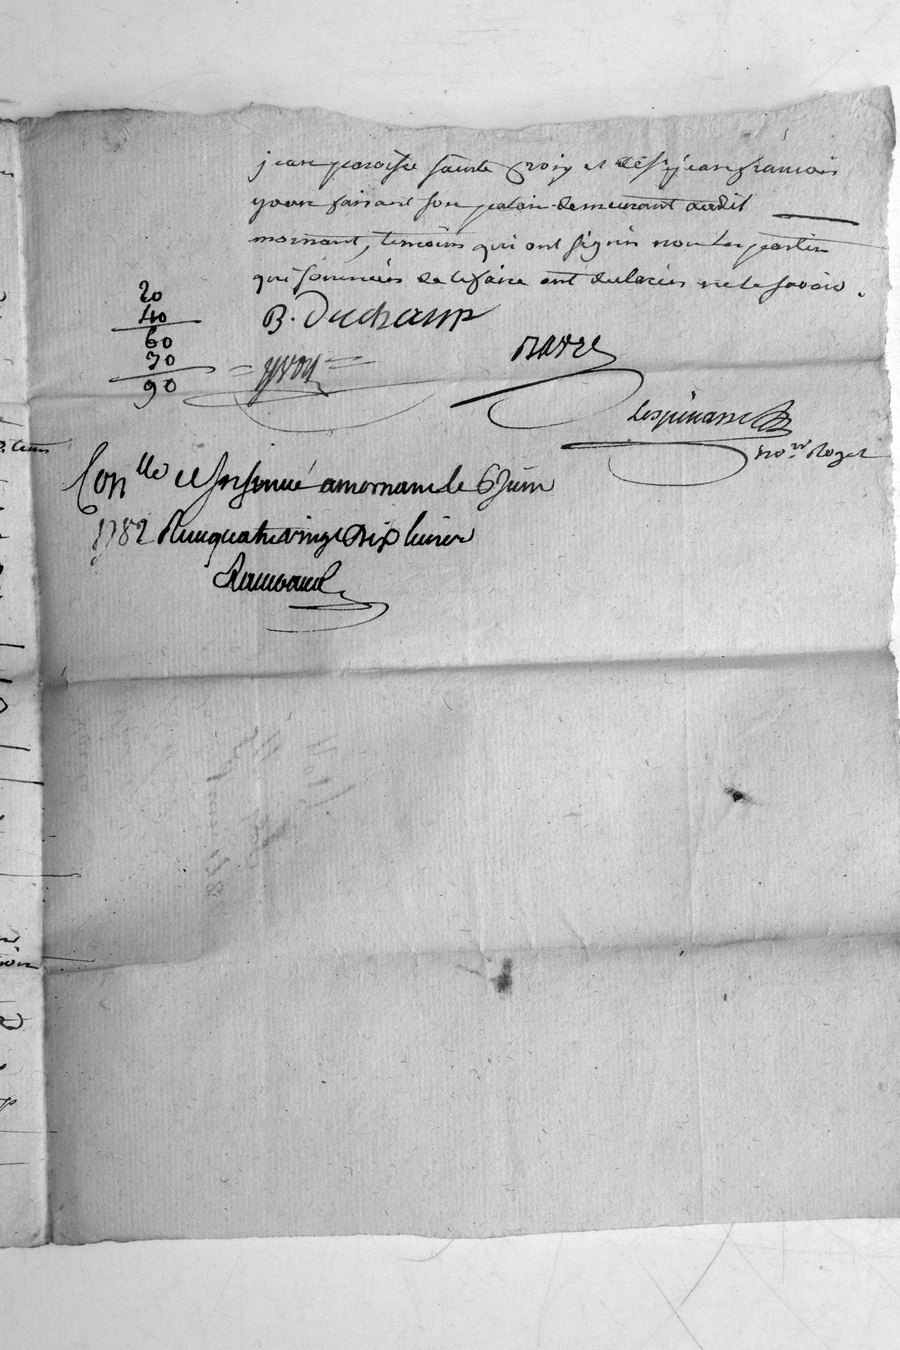 jean paroisse sainte Croix et de Sr jean françois
yvon faisant son palais demeurant audit
mornant, temoins qui ont signés non les parties
qui sommées de le faire ont declarées ne le savoir.
20
40
60
30
90
B. Duchamp
yvon
navre
Lespinasse
no.re Royal
Conlle et Insinué a mornant le 6 Juin
1782 Reçu quatre vingt dix livres
Rambaud